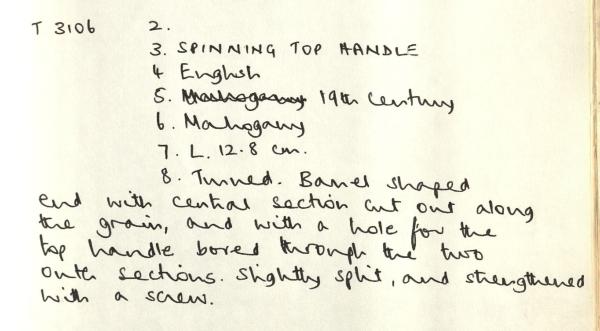 T 3106 2.
3. SPINNING TOP HANDLE
4 English
5. Mahogany 19th Century
6. Mahogany
7. L. 12.8 cm.
8. Turned. Barrel shaped
end with central section cut out along
the grain, and with a hole for the
top handle bored through the two
outer sections. Slightly split, and strengthened
with a screw.